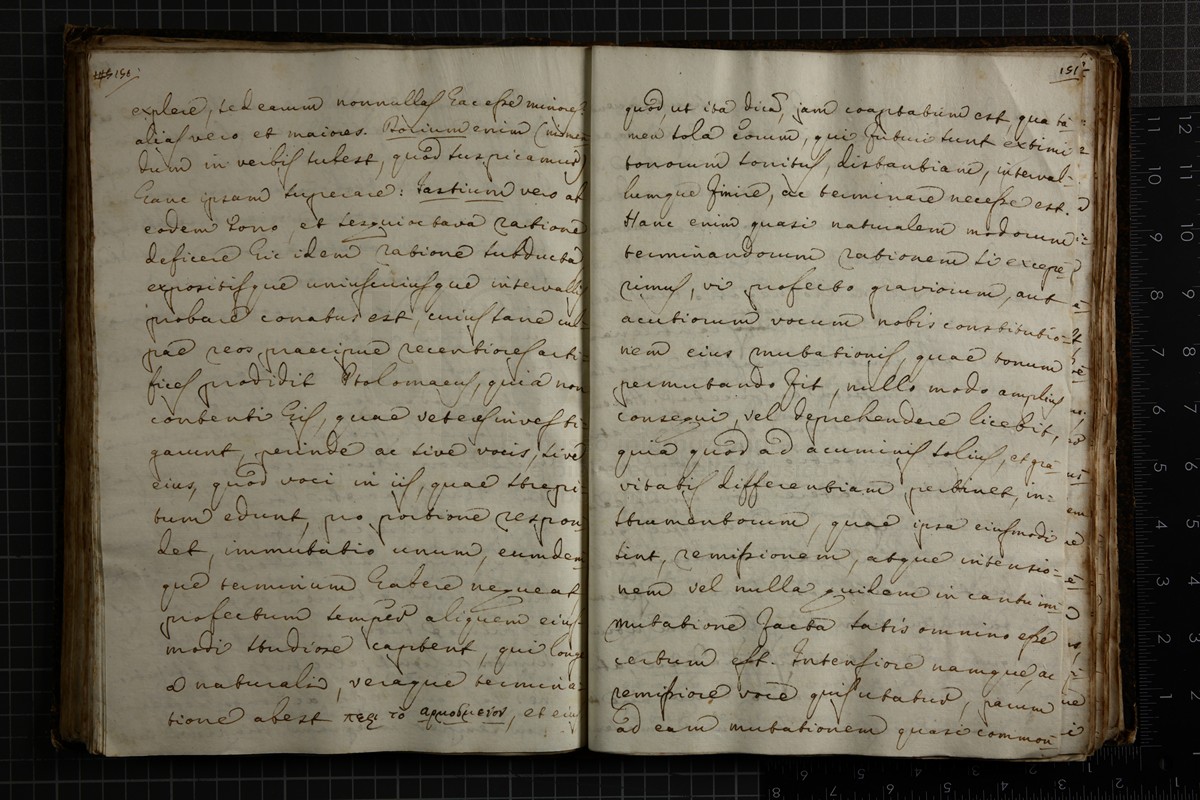 explere, sed earum nonnullas hac esse minores
alias vero et maiores. Dorium enim (mmo
dum in verbis subest, quod suspicamur
hanc ipsam superare: Iastium vero ab
eodem tono, et sesquioctava ratione
deficere hic idem ratione subducta
expositisque uniuscuiusque intervallis
probare conatus est, cuius sane cul-
pae reos praecipue recentiores arti-
fices prodidit Ptolomaeus, quia non
contenti his, quae veteres investi
garunt, perinde ac sive vocis, sive
eius, quod voci in iis, quae strepi-
tum edunt, pro portione respon-
det, immutatio unum, eumdem
que terminum habere nequeat,
profectum semper aliquem eius-
modi studiose captent, qui longe
a naturali, veraque termina-
tione abest περι το αρμοσμενον, et eius
151
quod, ut ita dicam, iam coaptatum est, qua ta-
men sola eorum, qui futuri sunt extimi
tonorum sonitus, distantiam, interval-
lumque finire, ac terminare necesse est.
Hanc enim quasi naturalem modorum
terminandorum rationem si excepe
rimus, vi profecto graviorum, aut
acutiorum vocum nobis constitutio-
nem eius mutationis, quae tonum
permutando fit, nullo modo amplius
consequi, vel deprehendere licebit,
quia quod ad acuminis solius, et gra
vitatis differentiam pertinet, in-
strumentorum, quae ipsa eiusmodi
sint, remissionem, atque intensio-
nem vel nulla quidem in cantu im
mutatione facta satis omnino esse
certum est. Intensiore namque, ac
remissiore voce quis utatur, parum
ad eam mutationem quasi commou